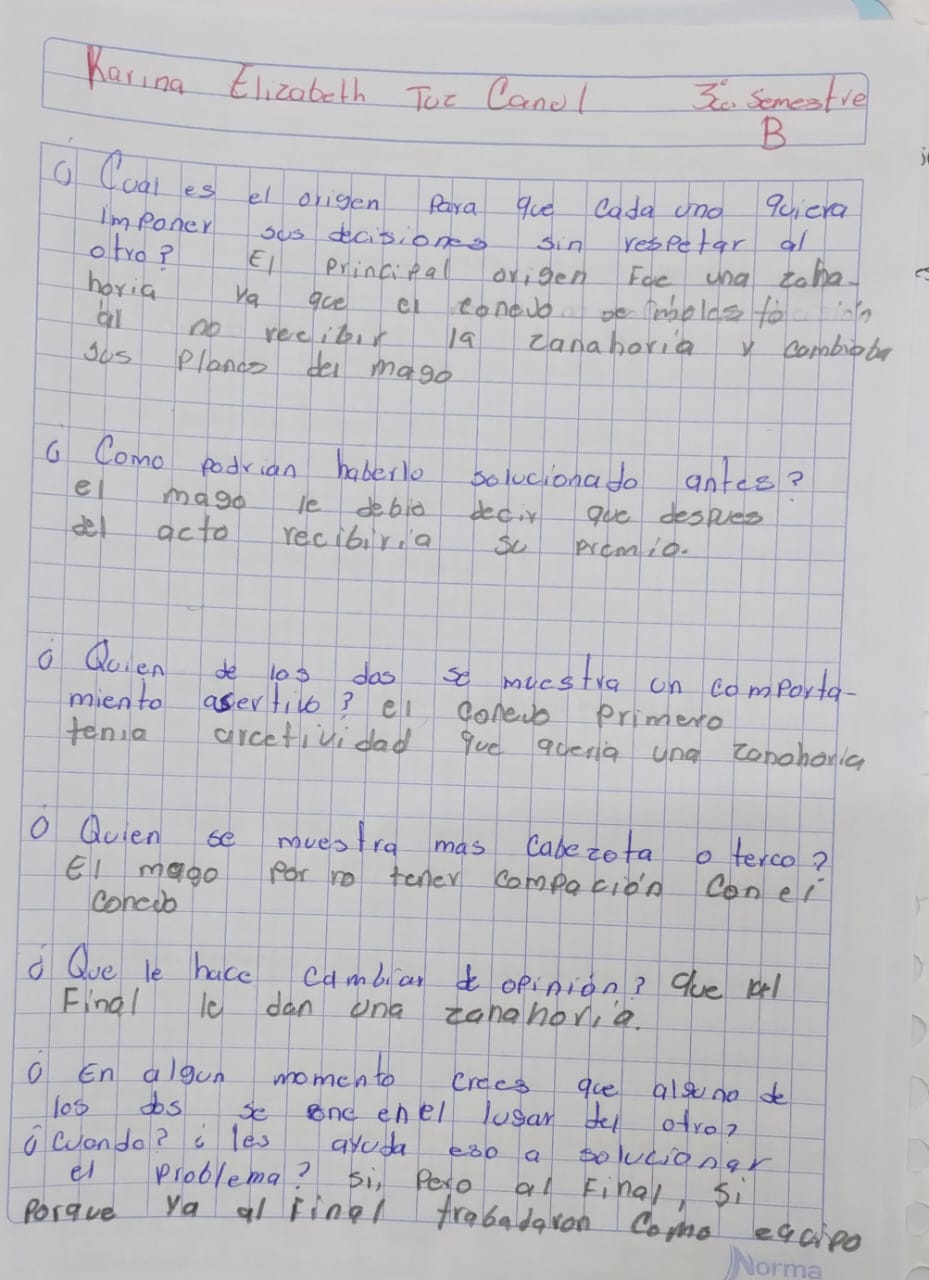 Karina Elizabeth Tuz Canul 3er. Semestre
B
¿Cual es el origen para que cada uno quiera
imponer sus decisiones sin respetar al
otro? El principal origen Fue una zaha-
horia ya que el conejo se molesto
al no recibir la zanahoria y cambiaba
sus planes del mago
¿Como podrian haberlo solucionado antes?
el mago le debio decir que despues
del acto recibiria su premio.
¿Quien de los dos se muestra un comporta-
miento asertivo? el conejo primero
tenia arcetividad que queria una zanahoria
¿Quien se muestra mas Cabezota o terco?
El mago por no tener compación con el
conejo
¿Que le hace cambiar de opinión? que al
Final le dan una zanahoria.
¿En algun momento crees que alguno de
los dos se one en el lugar del otro?
¿Cuando? ¿les ayuda eso a solucionar
el problema? Si, Pero al Final, Si
porque ya al Final trabadaron Como equipo
Norma